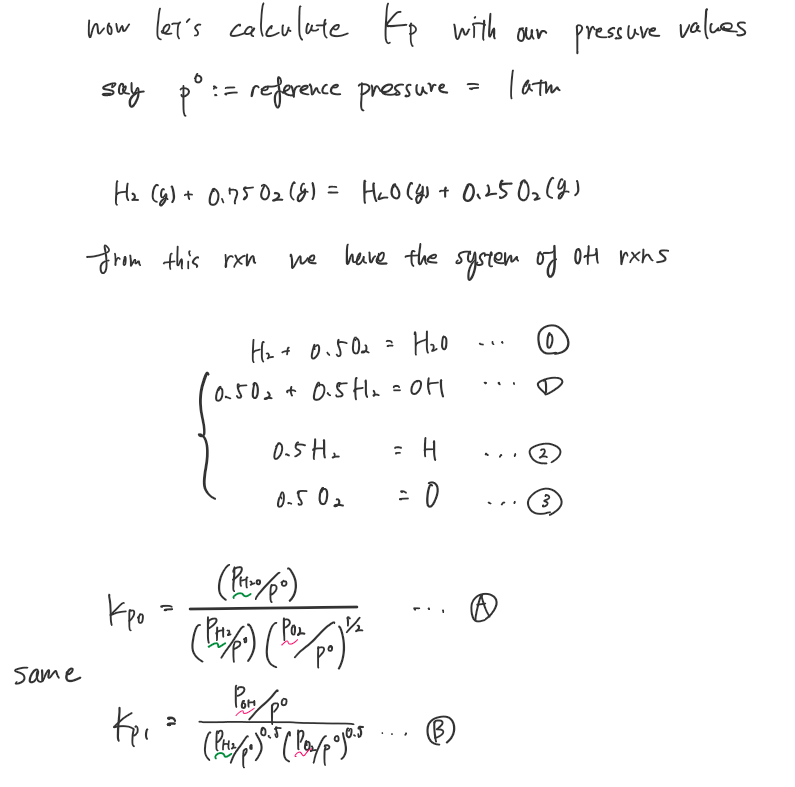 now let's calculate Kp with our pressure values
say p⁰ := reference pressure = 1 atm
H₂ (g) + 0.75 O₂ (g) = H₂O (g) + 0.25 O₂ (g)
from this rxn we have the system of OH rxns
H₂ + 0.5O₂ = H₂O ... ⓪
0.5O₂ + 0.5H₂ = OH ... ①
0.5H₂ = H ... ②
0.5 O₂ = O ... ③
Kp₀ = (P_H₂O/p⁰) / ((P_H₂/p⁰) (P_O₂/p⁰)^1/2) ... Ⓐ
same
Kp₁ = P_OH/p⁰ / ((P_H₂/p⁰)^0.5 (P_O₂/p⁰)^0.5) ... Ⓑ